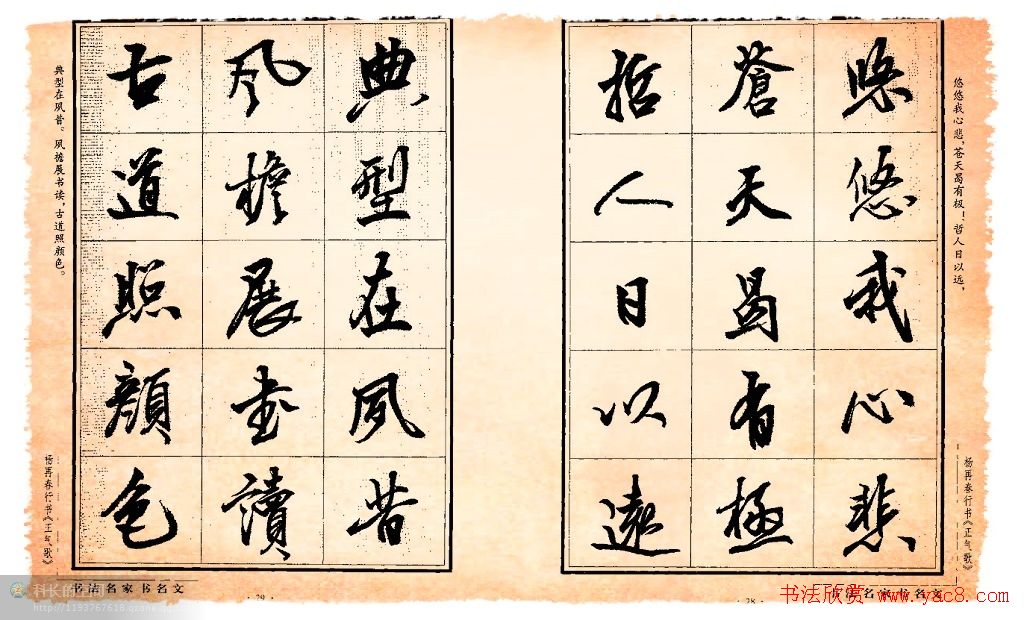 悠悠我心悲,苍天曷有极!哲人日以远,
杨再春行书《正气歌》
悠悠我心悲
蒼天曷有極
哲人日以遠
·28·
典型在夙昔
風檐展书讀
古道照顔色
典型在夙昔。风檐展书读,古道照颜色。
杨再春行书《正气歌》
书法名家书名文
·29·
科长的空间
http://1193767618.qzone.qq.com
书法欣赏 www.yac8.com